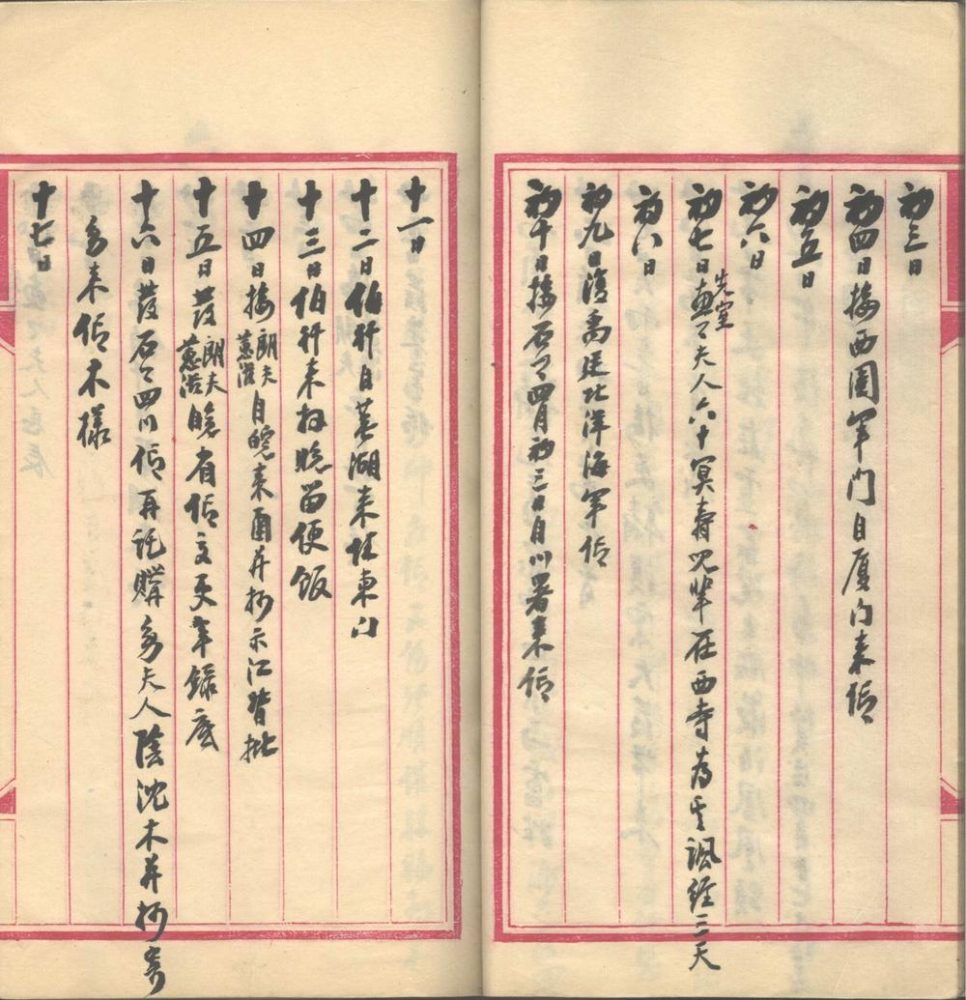 初三日
初四日接西園軍门自厦门来信
初五日
初六日
初七日先室惠之夫人六十冥寿児輩在西寺为其諷经三天
初八日
初九日復禹廷北洋海軍信
初十日接石之四月初三日自川署来信
十一日
十二日伯軒自蕪湖来住東门
十三日伯軒来扬晚留便飯
十四日接朗夫蕙滋自皖来函并抄示江督批
十五日發朗夫蕙滋皖省信交天年錄底
十六日發石之四川信再託購多夫人陰沈木并抄寄
多来信木樣
十七日